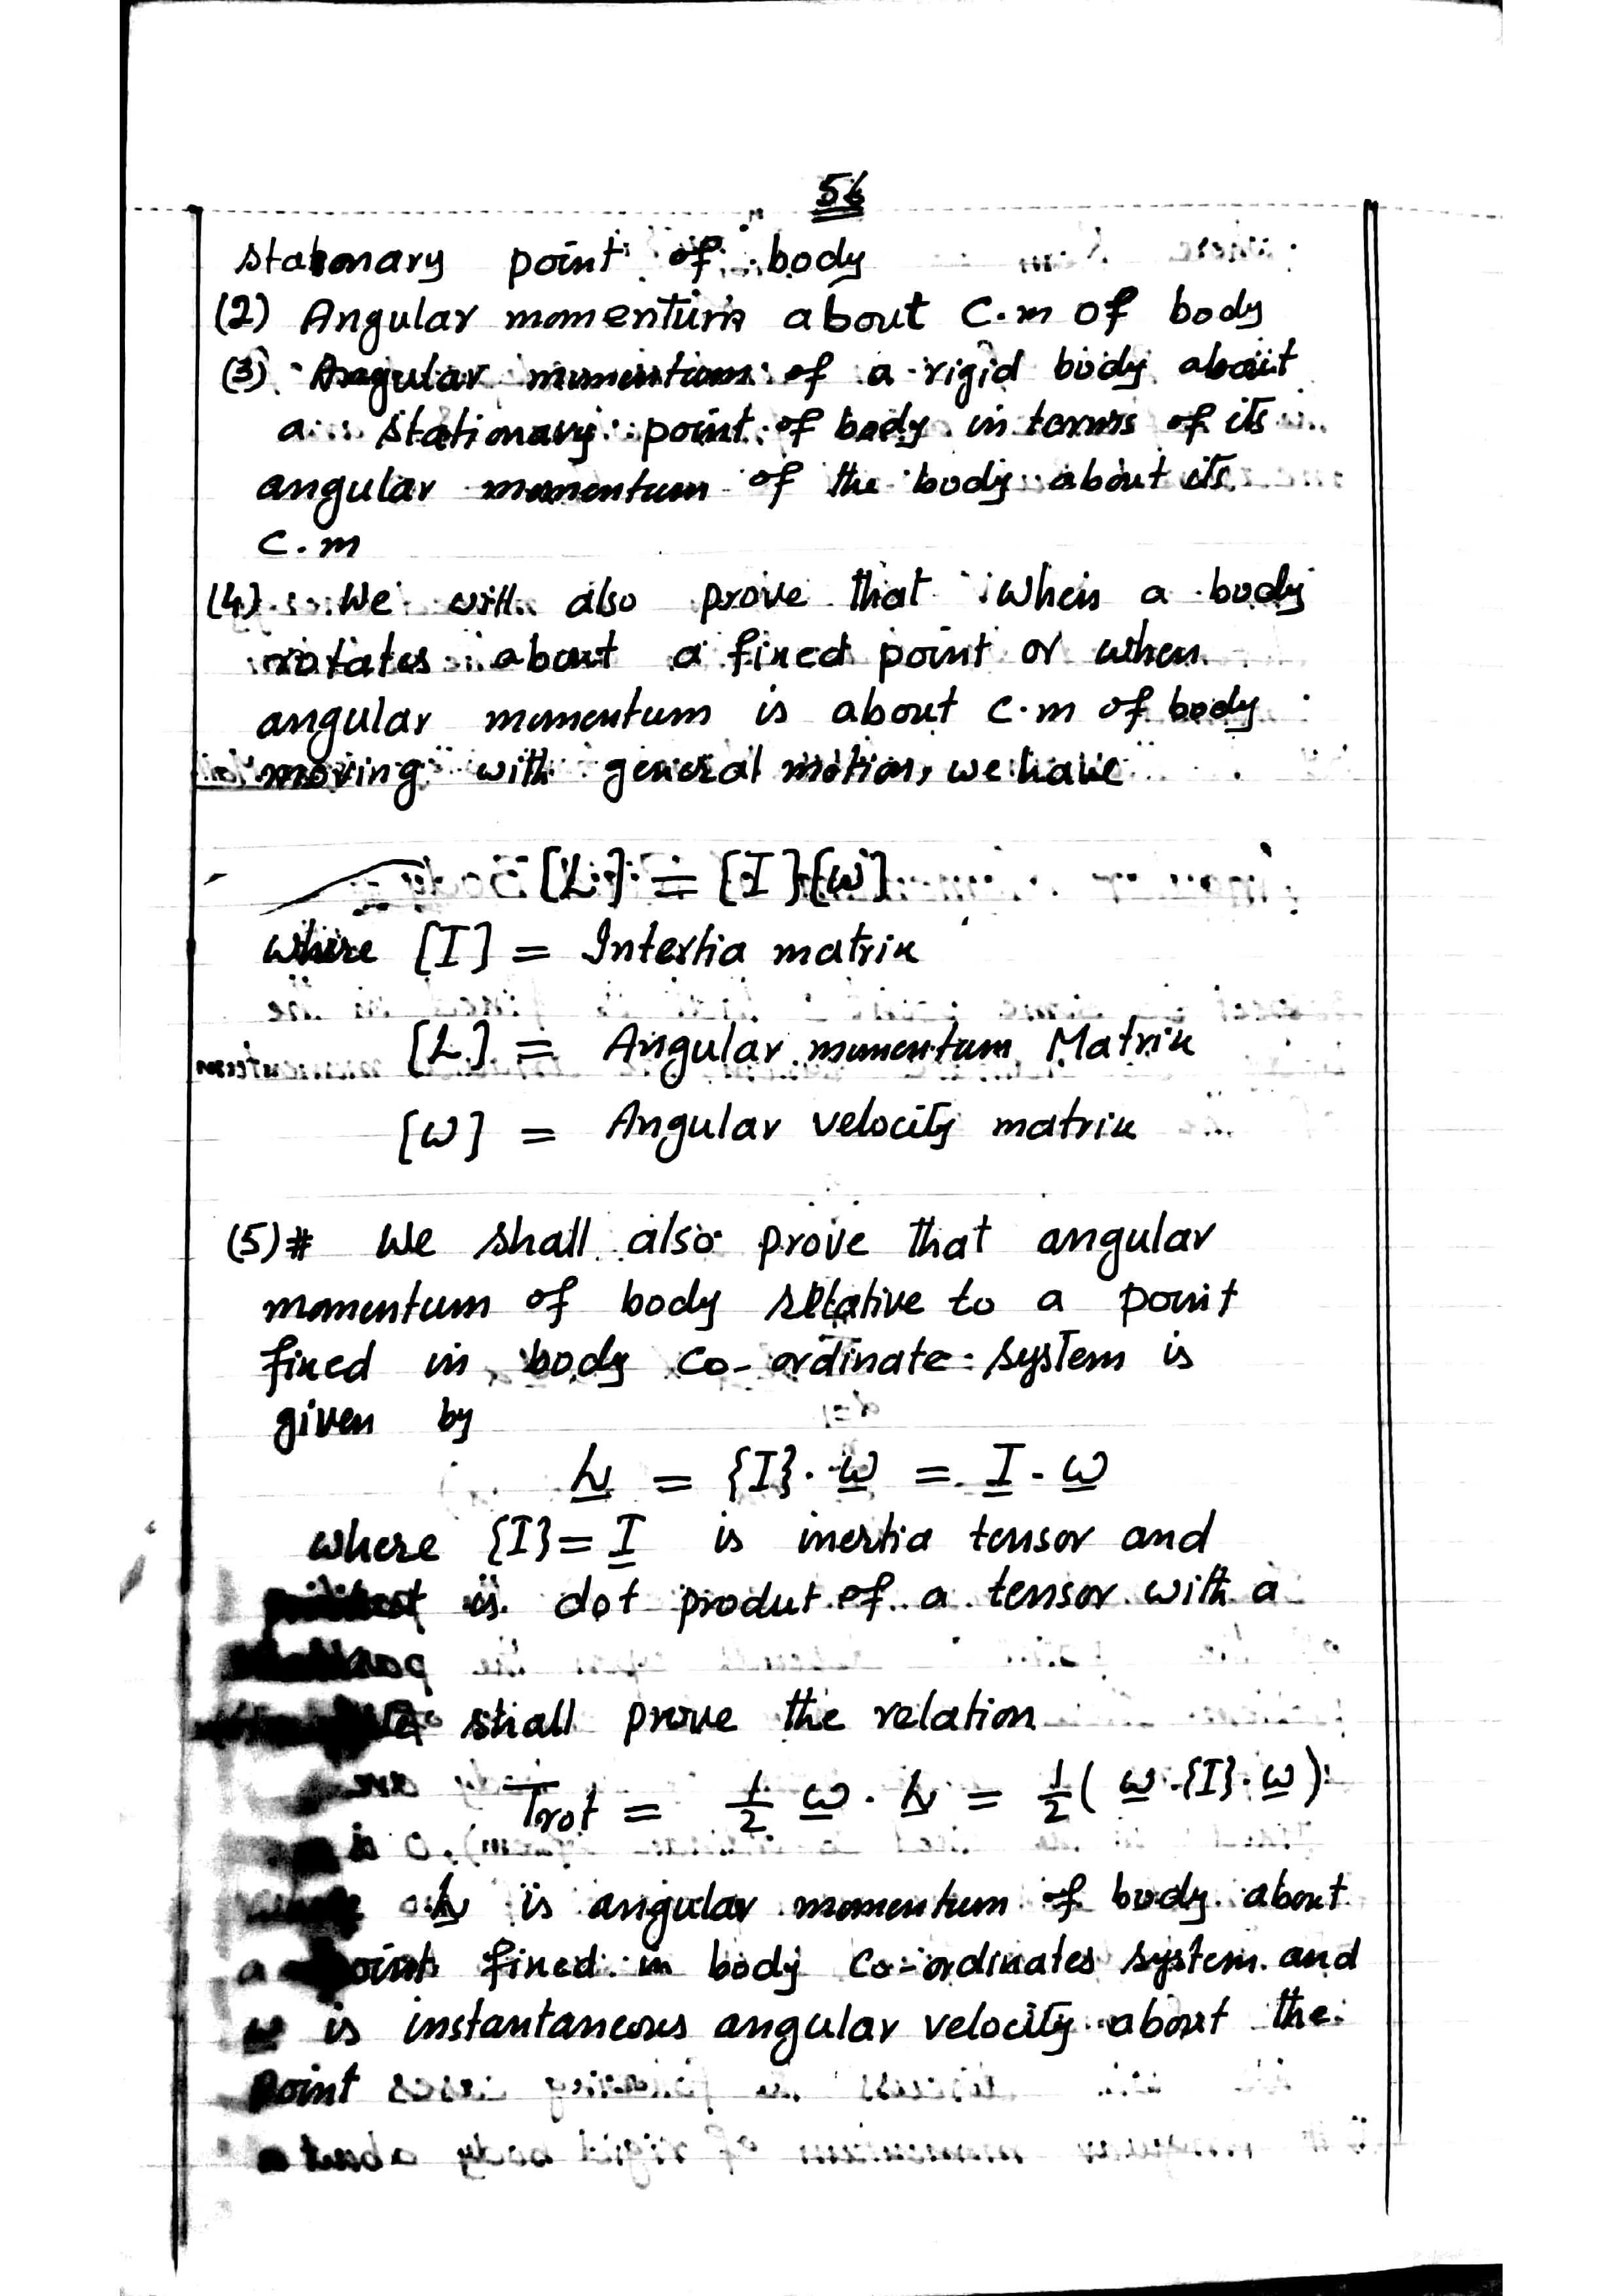 56
stationary point of body
(2) Angular momentum about C.m of body
(3) Angular momentum of a rigid body about
a stationary point of body in terms of its
angular momentum of the body about its
C.m
(4) We will also prove that when a body
rotates about a fixed point or when
angular momentum is about c.m of body
moving with general motion, we have
[L] = [I][ω]
where [I] = Intertia matrix
[L] = Angular momentum Matrix
[ω] = Angular velocity matrix
(5)# We shall also prove that angular
momentum of body relative to a point
fixed in body co-ordinate system is
given by
h = {I}. ω = I . ω
where {I} = I is inertia tensor and
is dot produt of a tensor with a
shall prove the relation
Trot = 1/2 ω . h = 1/2 ( ω .{I}. ω )
h is angular momentum of body about
a point fixed in body co-ordinates system and
ω is instantaneous angular velocity about the
point